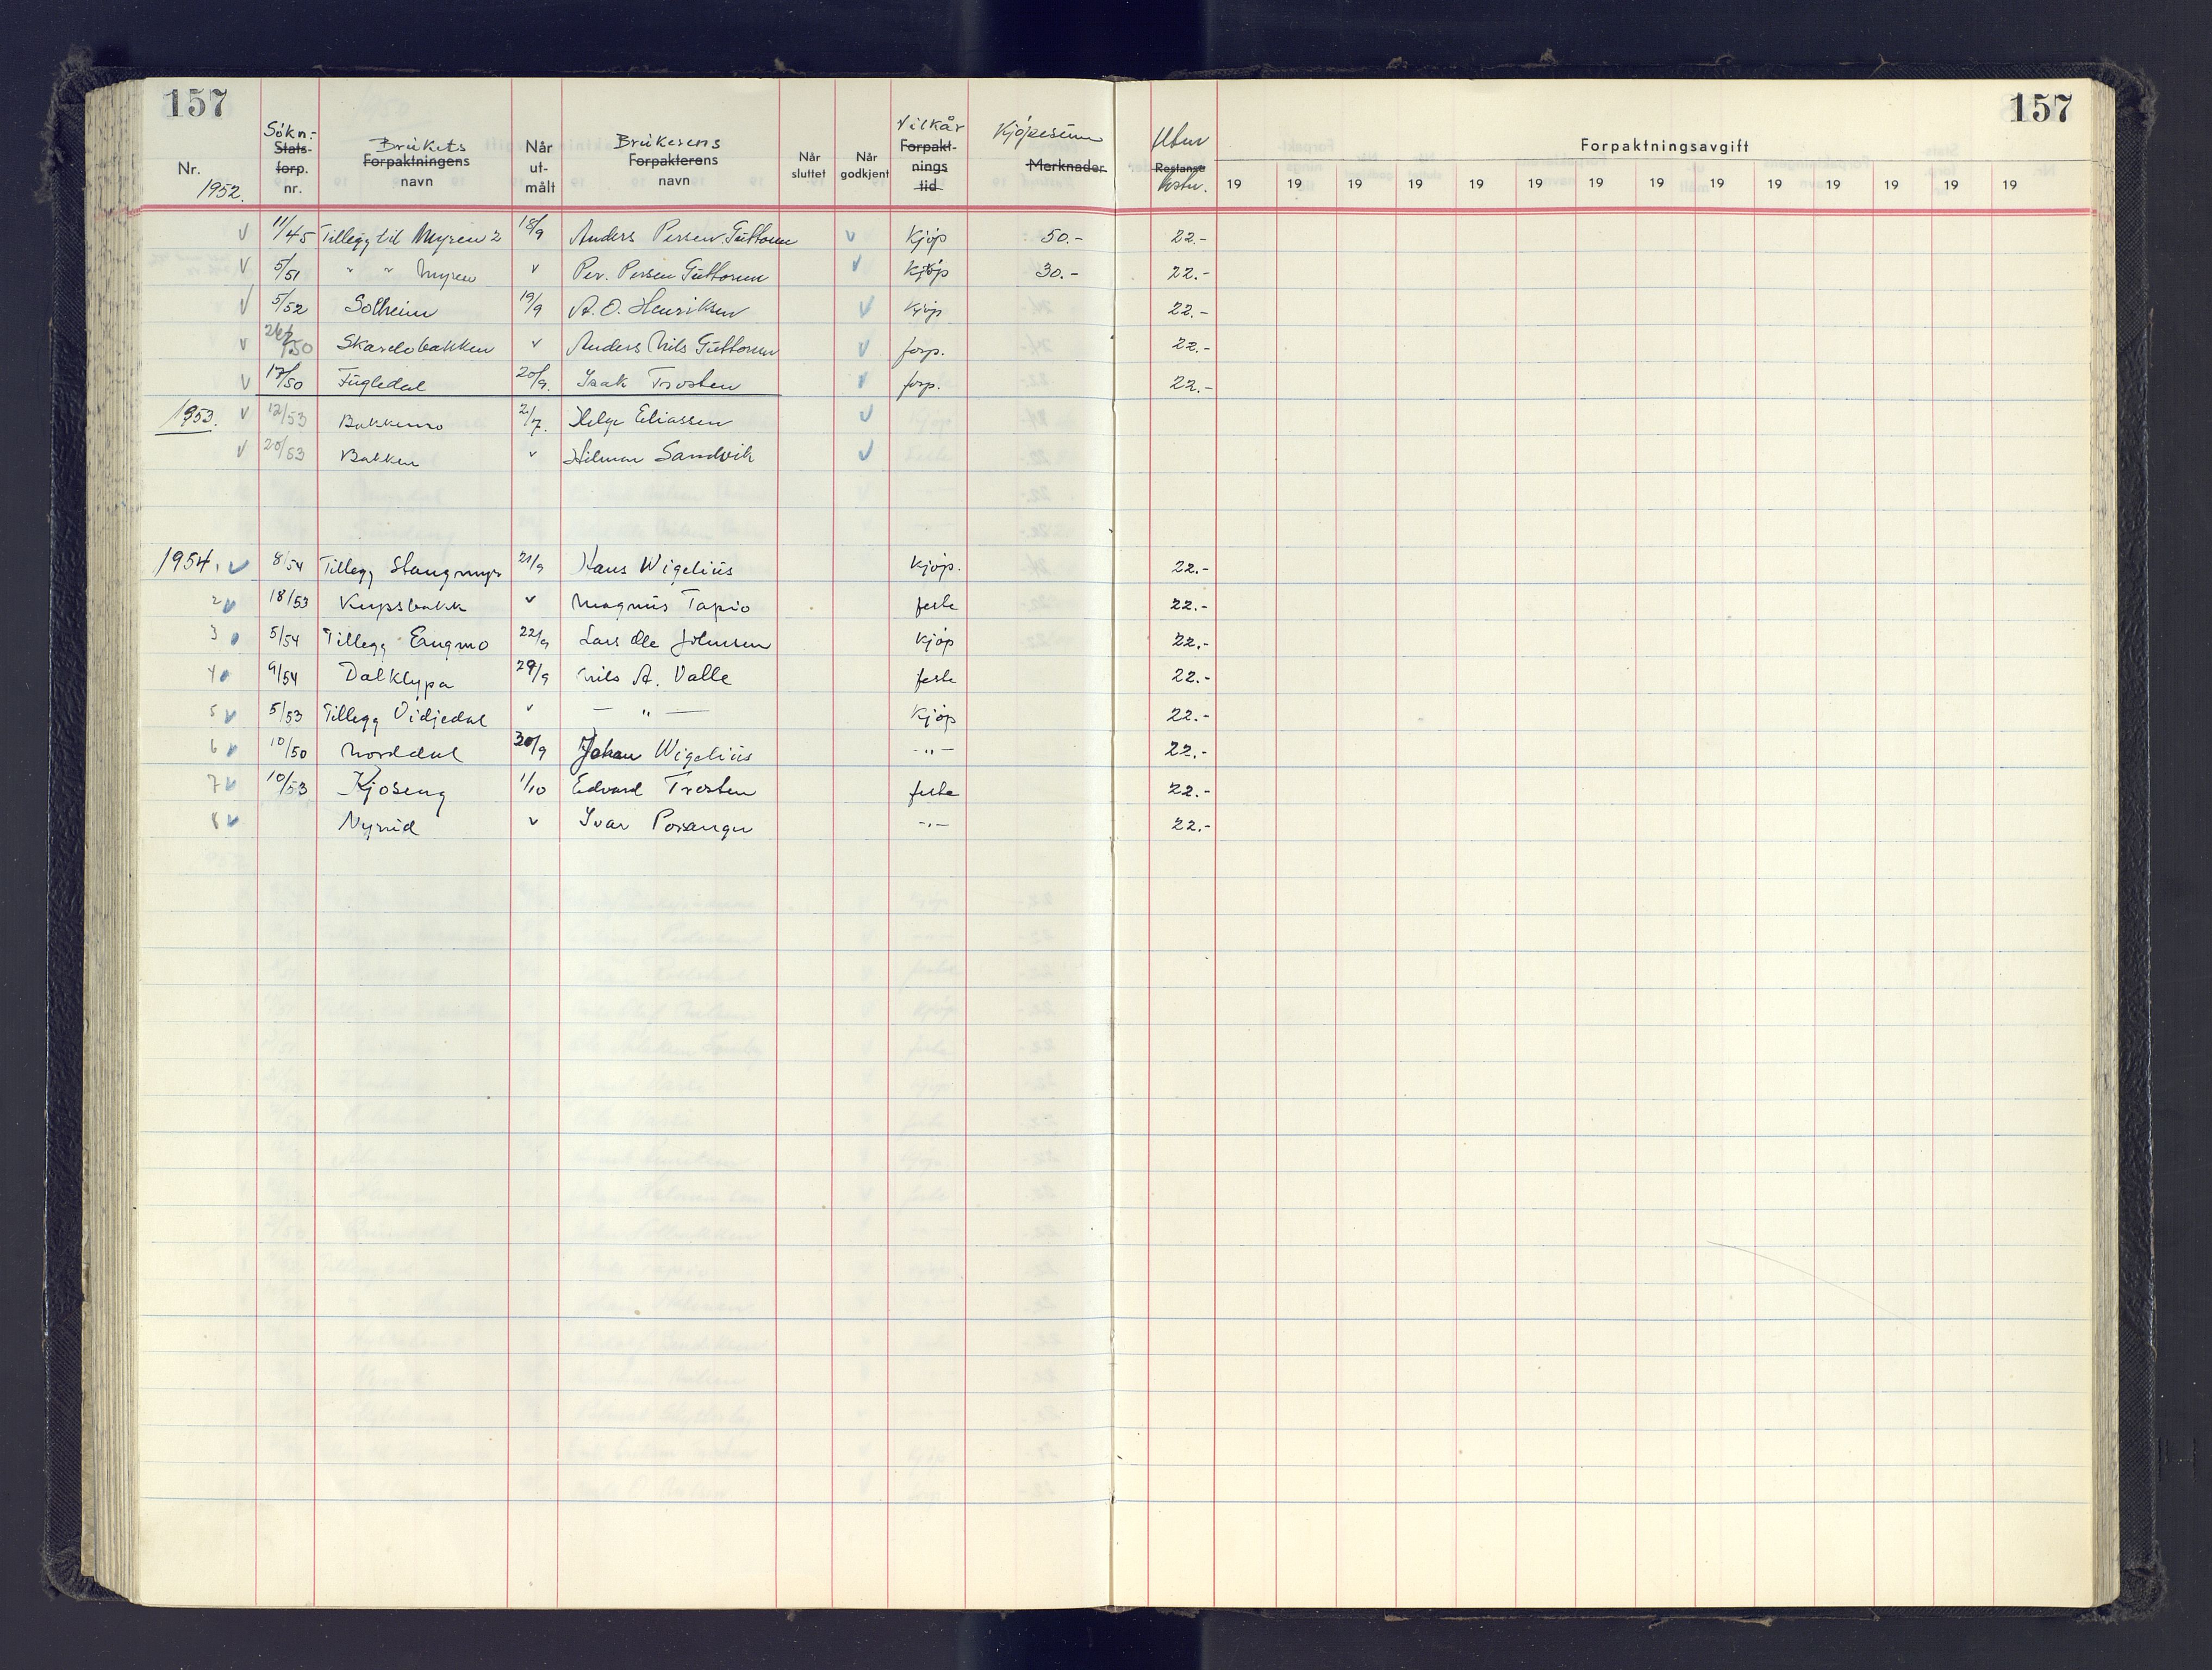 157
157
Nr. 1952.
Søkn:- Stats- forp. nr.
Brukets Forpaktningens navn
Når ut- målt
Brukerens Forpakterens navn
Når sluttet
Når godkjent
Vilkår Forpakt- nings tid
Kjøpesum Merknader
Restanse
Forpaktningsavgift
19 19 19 19 19 19 19 19 19 19 19 19 19 19
v 11/45 Tillegg til Myren 2 18/9 Anders Persen Guttorm v Kjøp 50.- 22.-
v 5/51 " " Myren v Per. Persen Guttorm v Kjøp 30.- 22.-
v 5/52 Solheim 19/9 A. O. Henriksen v Kjøp 22.-
v /50 Skardobakken v Anders Nils Guttorm v forp. 22.-
v 17/50 Fugledal 20/9. Isak Trosten v forp. 22.-
1953. v 12/53 Bakkemo 2/7. Helge Eliassen v
v 20/53 Bakken v Hilmar Sandvik v
1954. v 8/54 Tillegg Stangmyr 21/9 Hans Wigelius Kjøp. 22.-
2 v 18/53 v Magnus Tapio feste 22.-
3 5/54 Tillegg Engmo 22/9 Lars Ole Johnsen Kjøp 22.-
4 9/54 Dalklypa 29/9 Nils A. Valle feste 22.-
5 v 5/53 Tillegg Vidjedal v — " — Kjøp 22.-
6 v 10/50 Norddal 30/9 Johan Wigelius -"- 22.-
7 v 10/53 Kjoseng 1/10 Edvard Trosten feste 22.-
8 v Nyrud v Ivar Porsanger -"- 22.-